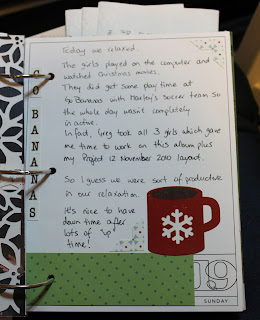 Today we relaxed.
The girls played on the computer and
watched Christmas movies.
They did get some play time at
Go Bananas with Marley's soccer team so
the whole day wasn't completely
inactive.
In fact, Greg took all 3 girls which gave
me time to work on this album plus
my Project 12 November 2010 layout.
So I guess we were sort of productive
in our relaxation.
It's nice to have
down time after
lots of "up
time!
GO BANANAS
19
SUNDAY